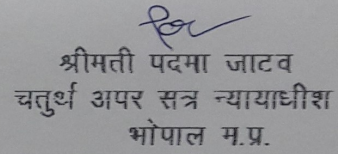 श्रीमती पदमा जाटव
चतुर्थ अपर सत्र न्यायाधीश
भोपाल म.प्र.